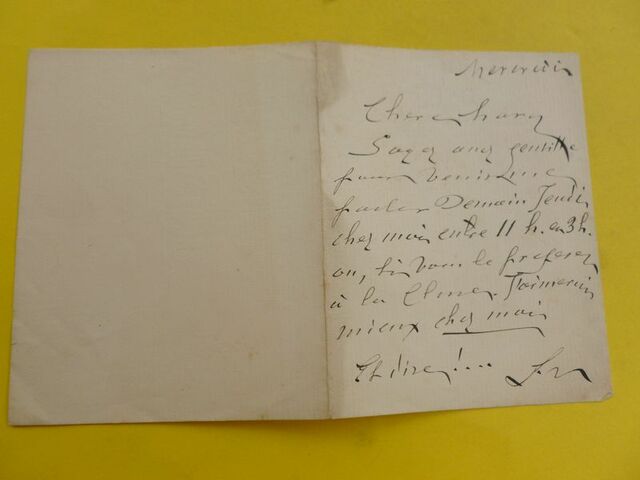 Mercredi
Chere
Soyez assez gentille
pour venir me
parler Demain Jeudi
chez moi entre 11 h. et 3 h.
ou, si vous le preferez
à la J'aimerais
mieux chez moi